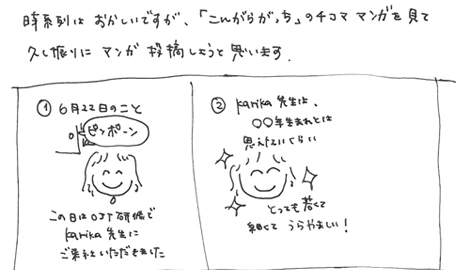 時系列は おかしいですが、「こんがらがっち」の4コマ マンガを見て
久し振りに マンガ 投稿しようと 思います.
① 6月22日のこと
ピンポーン
この日はOJT研修で
karika先生に
ご来社いただきました
② karika 先生は、
〇〇年生まれとは
思えないくらい
とっても若くて
細くて うらやましい!